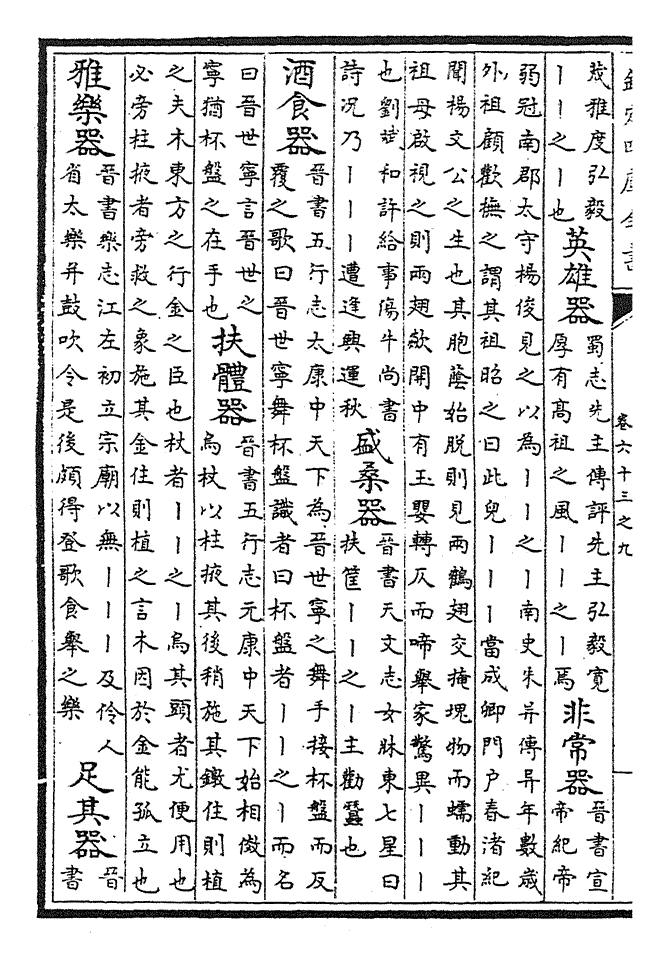 欽定四庫全書
卷六十三之九
茂雅度弘毅
丨丨之丨也
英雄器
蜀志先主傳評先主弘毅寛
厚有髙祖之風丨丨之丨焉
非常器
晉書宣
帝紀帝
弱冠南郡太守楊俊見之以為丨丨之丨南史朱异傳异年數歲
外祖顧歡撫之謂其祖昭之曰此兒丨丨丨當成卿門户春渚紀
聞楊文公之生也其胞蔭始脫則見兩鶴翅交掩塊物而蠕動其
祖母啟視之則兩翅欻開中有玉嬰轉仄而啼舉家驚異丨丨丨
也劉斌和許給事傷牛尚書
詩况乃丨丨丨遭逢興運秋
盛桑器
晉書天文志女牀東七星曰
扶筐丨丨之丨主勸蠶也
酒食器
晉書五行志太康中天下為晉世寧之舞手接杯盤而反
覆之歌曰晉世寧舞杯盤識者曰杯盤者丨丨之丨而名
曰晉世寧言晉世之
寧猶杯盤之在手也
扶體器
晉書五行志元康中天下始相傚為
烏杖以柱掖其後稍施其鐓住則植
之夫木東方之行金之臣也杖者丨丨之丨烏其頭者尤便用也
必旁柱掖者旁救之象施其金住則植之言木因於金能孤立也
雅樂器
晉書樂志江左初立宗廟以無丨丨丨及伶人
省太樂并鼓吹令是後頗得登歌食舉之樂
足其器
晉
書